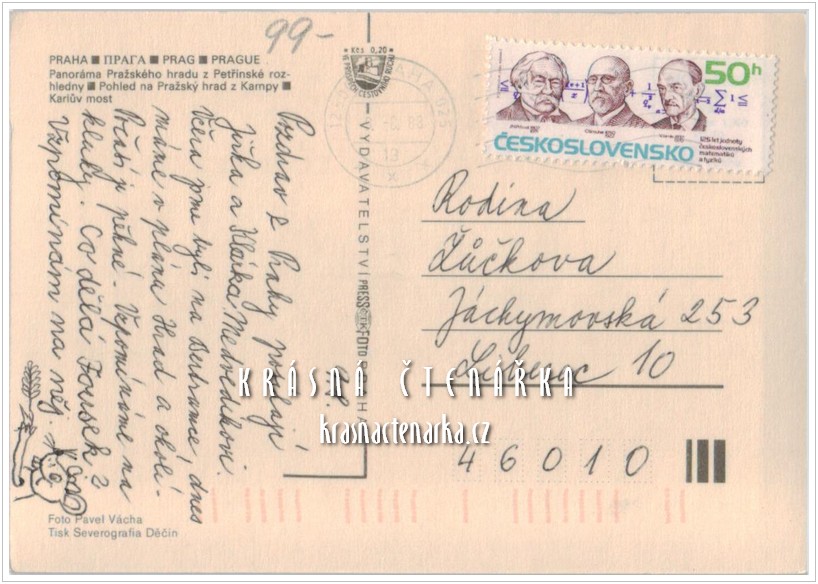 99-
PRAHA ■ ПРАГА ■ PRAG ■ PRAGUE
Panoráma Pražského hradu z Petřínské roz-
hledny ■ Pohled na Pražský hrad z Kampy ■
Karlův most
Kčs 0,20
VYDAVATELSTVÍ PRESSFOTO PRAHA
PRAHA 025
50h
ČESKOSLOVENSKO
125 let jednoty
československých
matematiků
a fyziků
Pozdrav z Prahy posílají
Jiřka a Klárka Medvědíkovi.
Včera jsme byli na Bertramce, dnes
máme v plánu Hrad a okolí.
Počasí je pěkné. Vzpomínáme na
kluky. Co dělá Fousek?
Vzpomínám na něj.
Rodina
Žůčkova
Jáchymovská 253
Liberec 10
46010
KRÁSNÁ ČTENÁŘKA
krasnactenarka.cz
Foto Pavel Vácha
Tisk Severografia Děčín